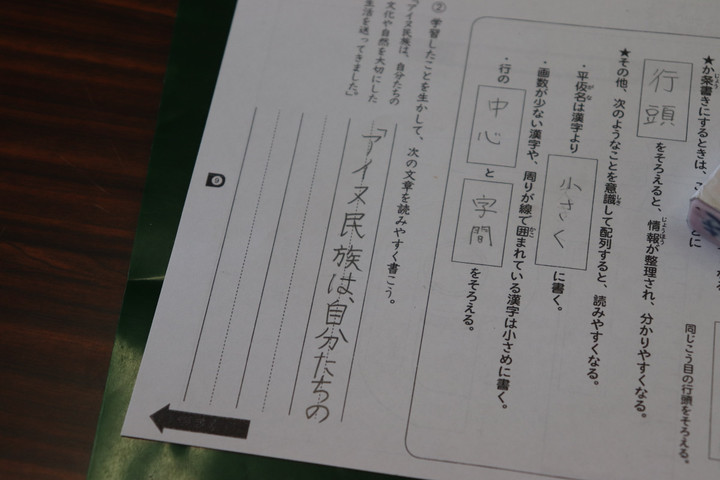 ★か条書きにするときは、
同じこう目の行頭をそろえる。
行頭をそろえると、情報が整理され、分かりやすくなる。
★その他、次のようなことを意識して配列すると、読みやすくなる。
・平仮名は漢字より小さくに書く。
・画数が少ない漢字や、周りが線で囲まれている漢字は小さめに書く。
・行の中心と字間をそろえる。
② 学習したことを生かして、次の文章を読みやすく書こう。
「アイヌ民族は、自分たちの
文化や自然を大切にした
生活を送ってきました。」
「アイヌ民族は、自分たちの